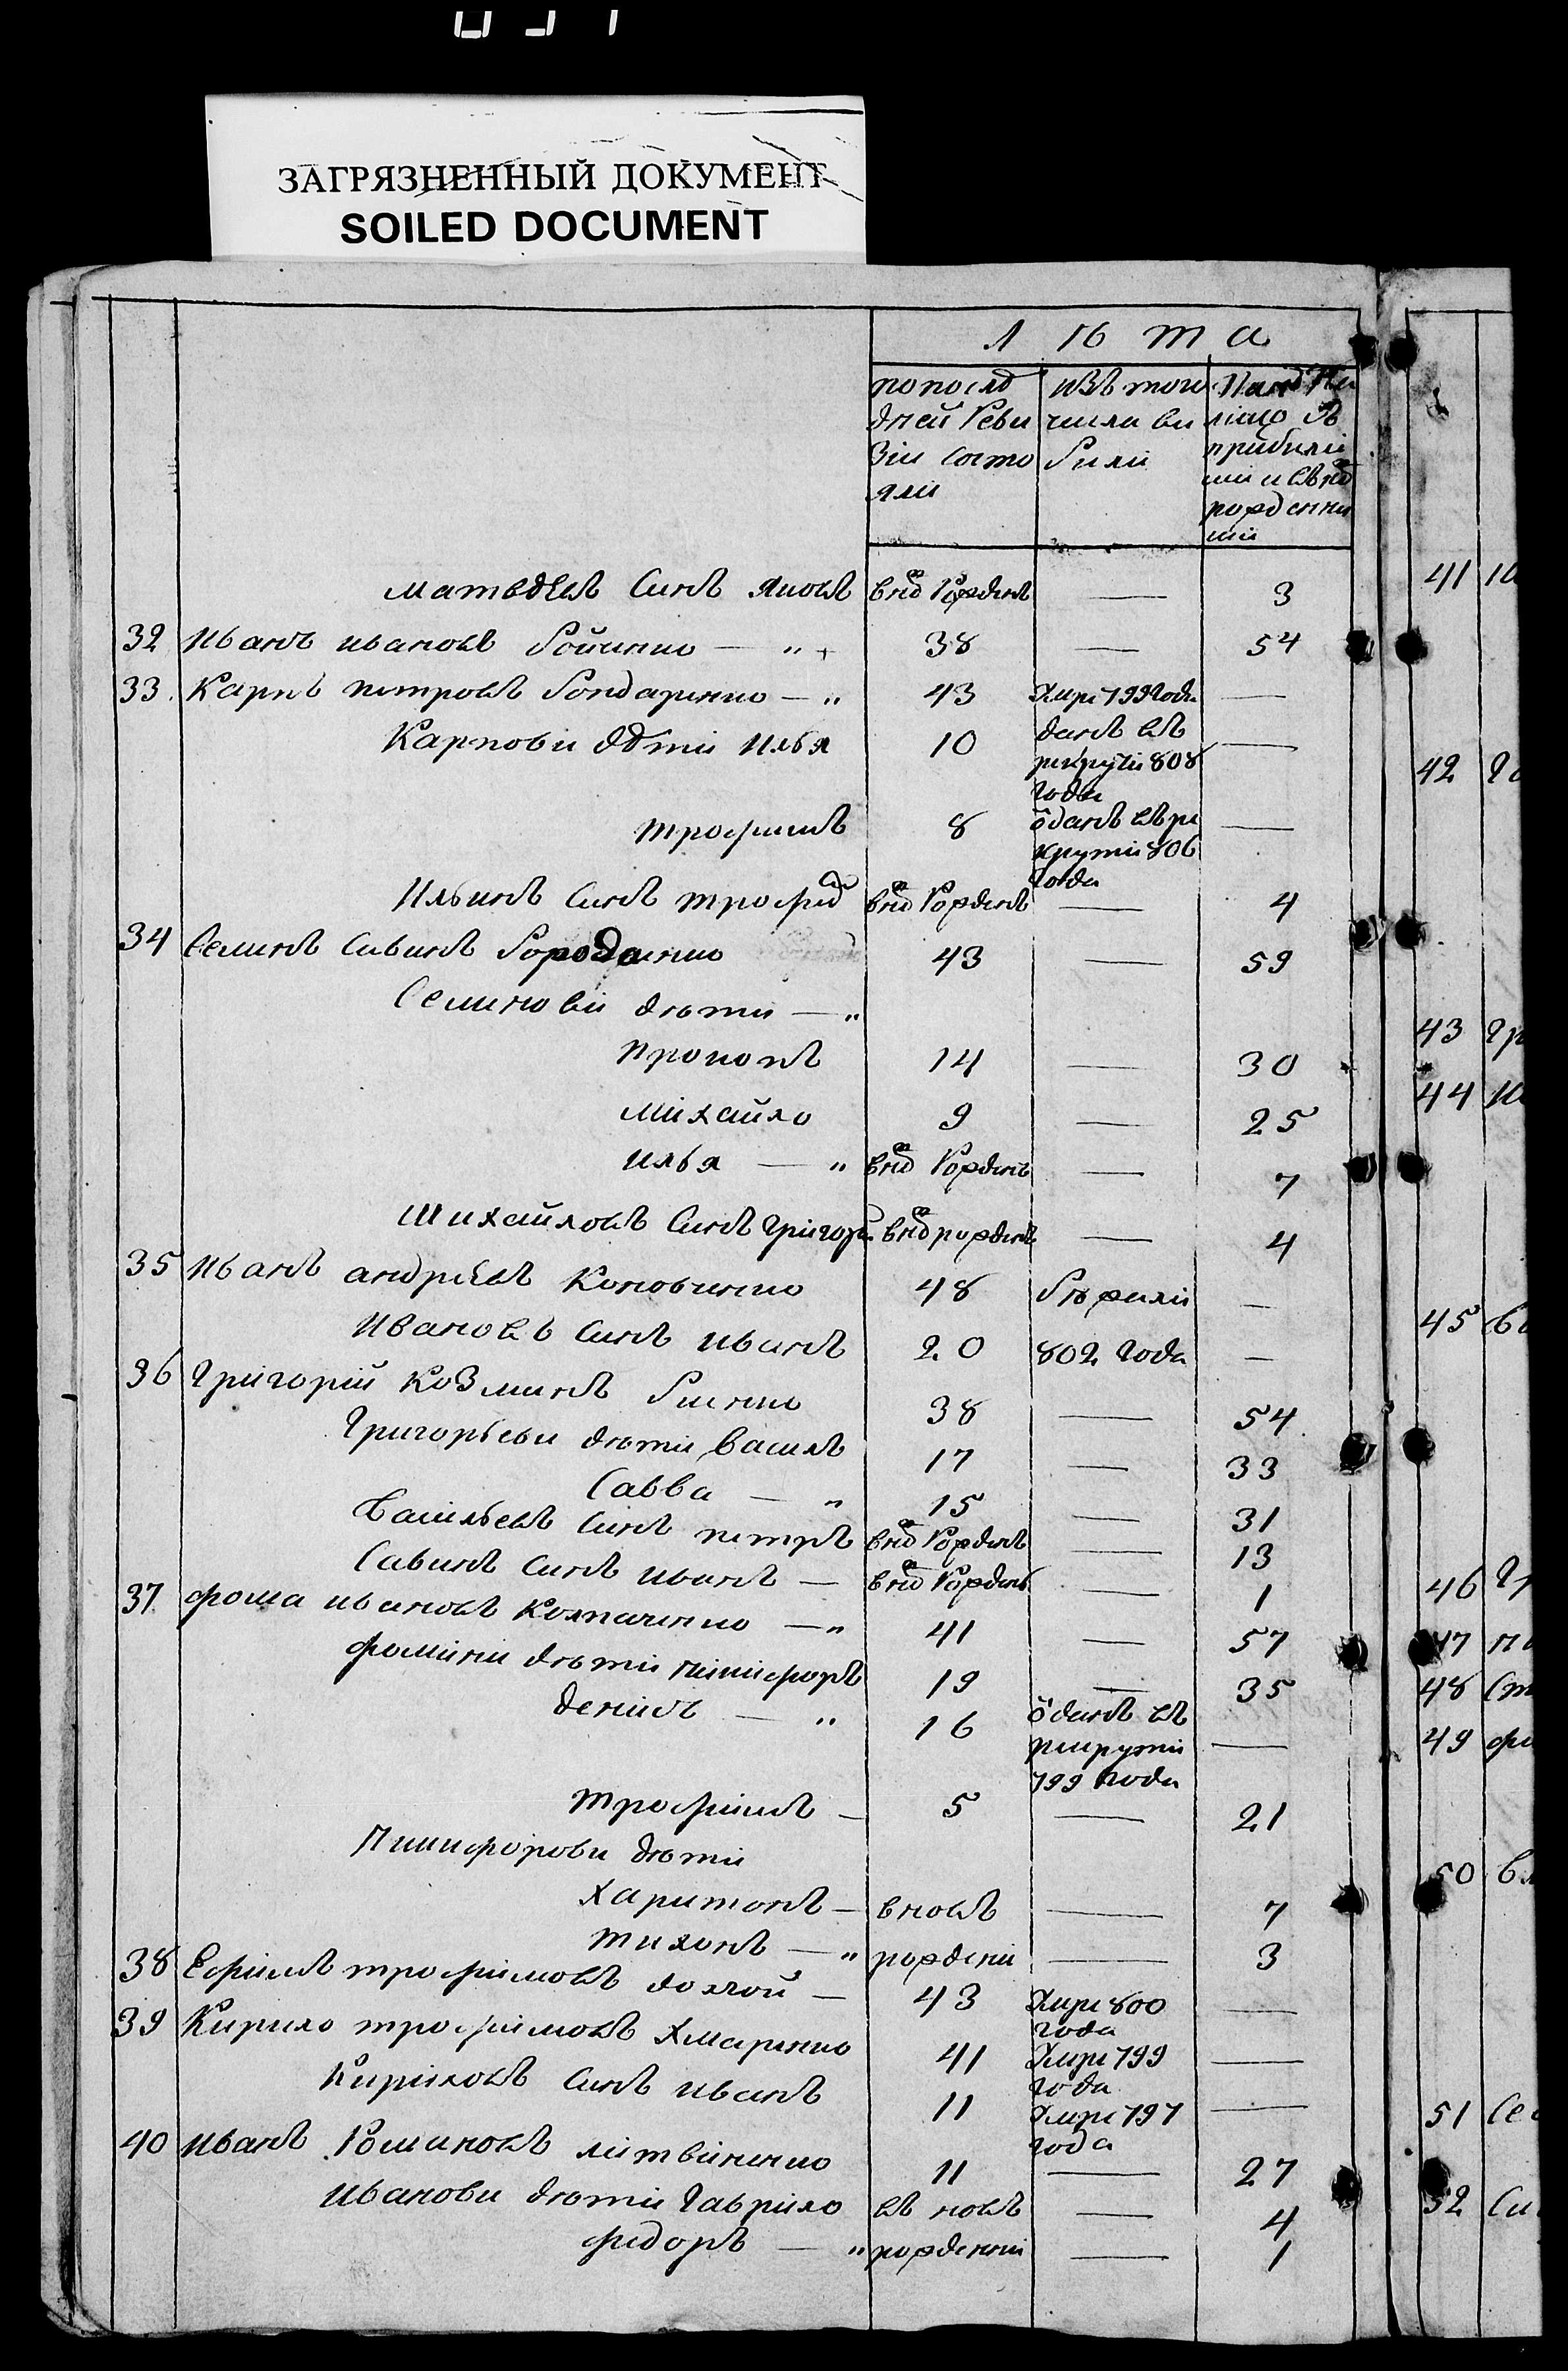 ЗАГРЯЗНЕННЫЙ ДОКУМЕНТ
SOILED DOCUMENT
Лѣта
по послѣ дней Реви зіи состо яли | изъ того числа вы были | прибыли
Матвѣевъ Синъ Яковъ внѡ Рожденъ — 3
32 Иванъ ивановъ — 38 — 54
33 Карпъ петровъ Бондаренко — 43 Умре 799 Года —
Карпови дѣти илья 10 данъ въ рекрути 808 года —
трофимъ 8 ѿданъ въ ре крути 806 года —
Ильинъ Синъ трофимъ внѡ Рожденъ — 4
34 Семинъ Савинъ 43 — 59
Семинови дѣти —
прокопъ 14 — 30
Михайло 9 — 25
илья — внѡ Рожденъ — 7
Михайловъ Синъ григорей внѡ рожденъ — 4
35 Иванъ андреевъ 48 бѣжали —
Ивановъ Синъ иванъ 20 802 года —
36 Григорій козминъ 38 — 54
Григорьеви дѣти василъ 17 — 33
Савва — 15 — 31
Васильевъ Синъ петръ внѡ Рожденъ — 13
Савинъ Синъ иванъ — внѡ Рожденъ — 1
37 фома ивановъ колпаченко — 41 — 57
фомини дѣти никифоръ 19 — 35
денисъ — 16 ѿданъ въ рекрути 799 года —
трофимъ — 5 — 21
Никифорови дѣти
харитонъ — вновъ — 7
тихонъ — рождени — 3
38 Ефимъ трофимовъ долгой — 43 Умре 800 года —
39 Кирило трофимовъ Хмаренко 41 Умре 799 года —
Кириловъ Синъ иванъ 11 Умре 797 года —
40 Иванъ Романовъ литвиненко 11 — 27
Иванови дѣти гаврило въ новъ — 4
федоръ — рожденни — 1
41
42
43
44
45
46
47
48
49
50
51
52